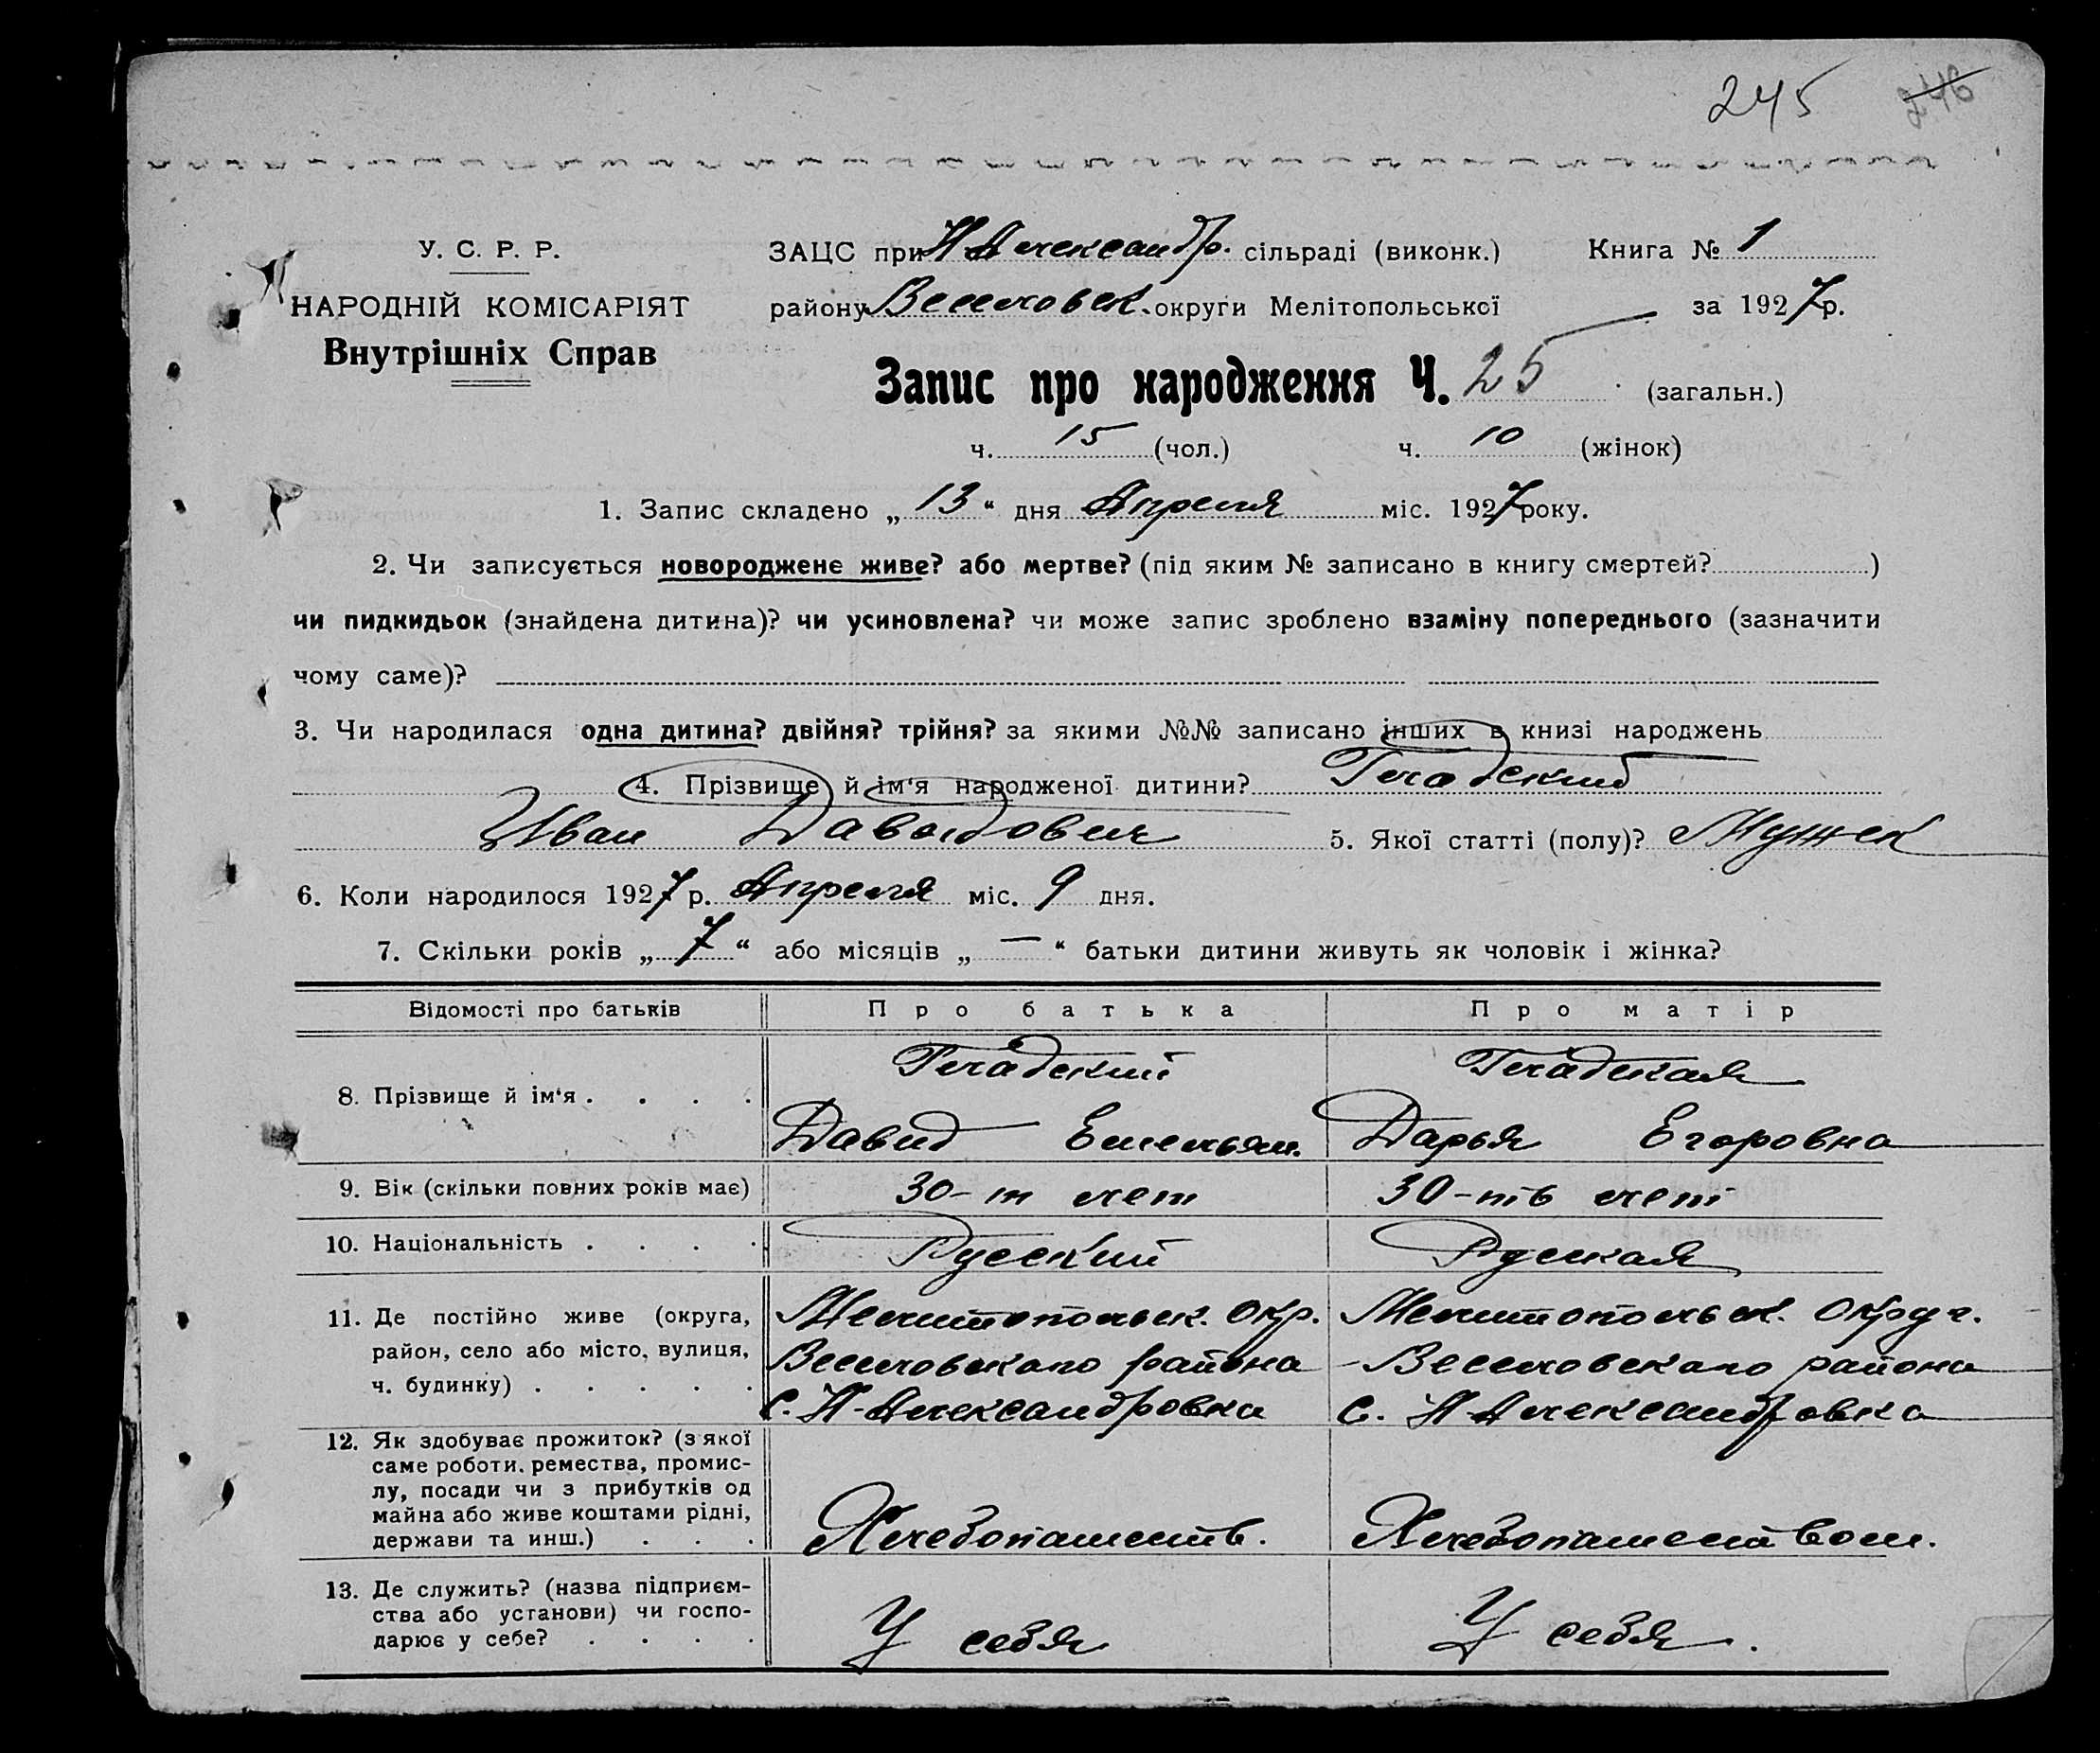 245 246
У. С. Р. Р.
НАРОДНІЙ КОМІСАРІЯТ
Внутрішніх Справ
ЗАЦС при Н Александр. сільраді (виконк.) Книга № 1
району Веселовск. округи Мелітопольської за 1927 р.
Запис про народження Ч. 25 (загальн.)
ч. 15 (чол.) ч. 10 (жінок)
1. Запис складено „13“ дня Апреля міс. 1927 року.
2. Чи записується новороджене живе? або мертве? (під яким № записано в книгу смертей? )
чи пидкидьок (знайдена дитина)? чи усиновлена? чи може запис зроблено взаміну попереднього (зазначити
чому саме)?
3. Чи народилася одна дитина? двійня? трійня? за якими №№ записано інших в книзі народжень
4. Прізвище й ім‘я народженої дитини?
Иван Давыдович 5. Якої статті (полу)? Мужск
6. Коли народилося 1927 р. Апреля міс. 9 дня.
7. Скільки років „7“ або місяців „—“ батьки дитини живуть як чоловік і жінка?
Відомості про батьків Про батька Про матір
8. Прізвище й ім‘я
Давид Емельян. Дарья Егоровна
9. Вік (скільки повних років має) 30-т лет 30-ть лет
10. Національність Русский Руская
11. Де постійно живе (округа, Мелитопольск. окр. Мелитопольск. округ.
район, село або місто, вулиця, Веселовского района Веселовского района
ч. будинку) с. Н-Александровка с. Н-Александровка
12. Як здобуває прожиток? (з якої
саме роботи. ремества, промис-
лу, посади чи з прибутків од
майна або живе коштами рідні,
держави та инш.) Хлебопашеств. Хлебопашеством.
13. Де служить? (назва підприєм-
ства або установи) чи госпо-
дарює у себе? У себя У себя.